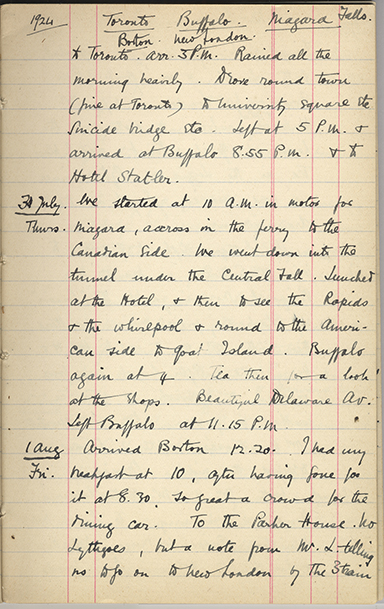 1924 Toronto Buffalo. Niagara Falls.
Boston. New London.
to Toronto. arr. 3 P.M. Rained all the
morning heavily. Drove round town
(fine at Toronto) to University Square etc
Suicide bridge etc. Left at 5 P.M. &
arrived at Buffalo 8.55 P.M. & to
Hotel Statler.
31 July. We started at 10 A.M. in motor for
Thurs. Niagara, accross in the ferry to the
Canadian Side. We went down into the
tunnel under the Central Fall. Lunched
at the Hotel, & then to see the Rapids
& the whirlpool & round to the Ameri-
can side to Goat Island. Buffalo
again at 4. Tea then for a look
at the shops. Beautiful Delaware Av.
Left Buffalo at 11.15 P.M.
1 Aug Arrived Boston 12.20. I had my
Fri. breakfast at 10, after having gone for
it at 8.30 so great a crowd for the
dining car. To the Parker House. No
Lythgoes, but a note from Mr. L- telling
us to go on to New London by the 3 train